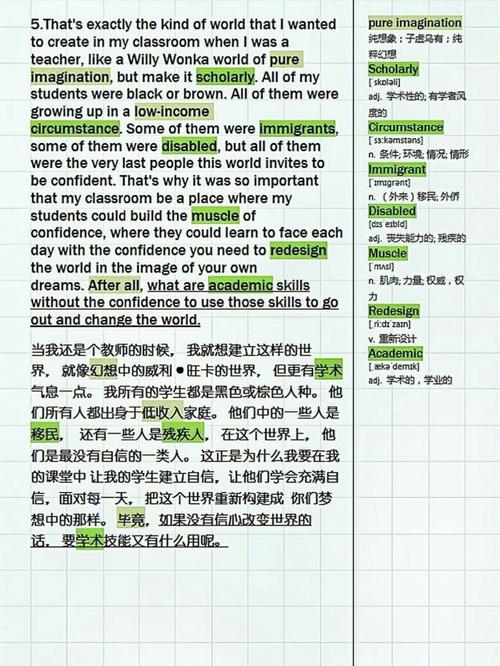 5.That's exactly the kind of world that I wanted
to create in my classroom when I was a
teacher, like a Willy Wonka world of pure
imagination, but make it scholarly. All of my
students were black or brown. All of them were
growing up in a low-income
circumstance. Some of them were immigrants,
some of them were disabled, but all of them
were the very last people this world invites to
be confident. That's why it was so important
that my classroom be a place where my
students could build the muscle of
confidence, where they could learn to face each
day with the confidence you need to redesign
the world in the image of your own
dreams. After all, what are academic skills
without the confidence to use those skills to go
out and change the world.
当我还是个教师的时候， 我就想建立这样的世
界， 就像幻想中的威利●旺卡的世界， 但更有学术
气息一点。 我所有的学生都是黑色或棕色人种。 他
们所有人都出身于低收入家庭。 他们中的一些人是
移民， 还有一些人是残疾人， 在这个世界上， 他
们是最没有自信的一类人。 这正是为什么我要在我
的课堂中 让我的学生建立自信，让他们学会充满自
信，面对每一天， 把这个世界重新构建成 你们梦
想中的那样。 毕竟，如果没有信心改变世界的
话， 要学术技能又有什么用呢。
pure imagination
纯想象；子虚乌有；纯
粹幻想
Scholarly
[ˈskɒləli]
adj. 学术性的; 有学者风
度的
Circumstance
[ˈsɜːkəmstəns]
n. 条件; 环境; 情况; 情形
Immigrant
[ˈɪmɪɡrənt]
n. （外来）移民; 外侨
Disabled
[dɪsˈeɪbld]
adj. 丧失能力的; 残疾的
Muscle
[ˈmʌsl]
n. 肌肉; 力量; 权威，权
力
Redesign
[ˌriːdɪˈzaɪn]
v. 重新设计
Academic
[ˌækəˈdemɪk]
adj. 学术的，学业的